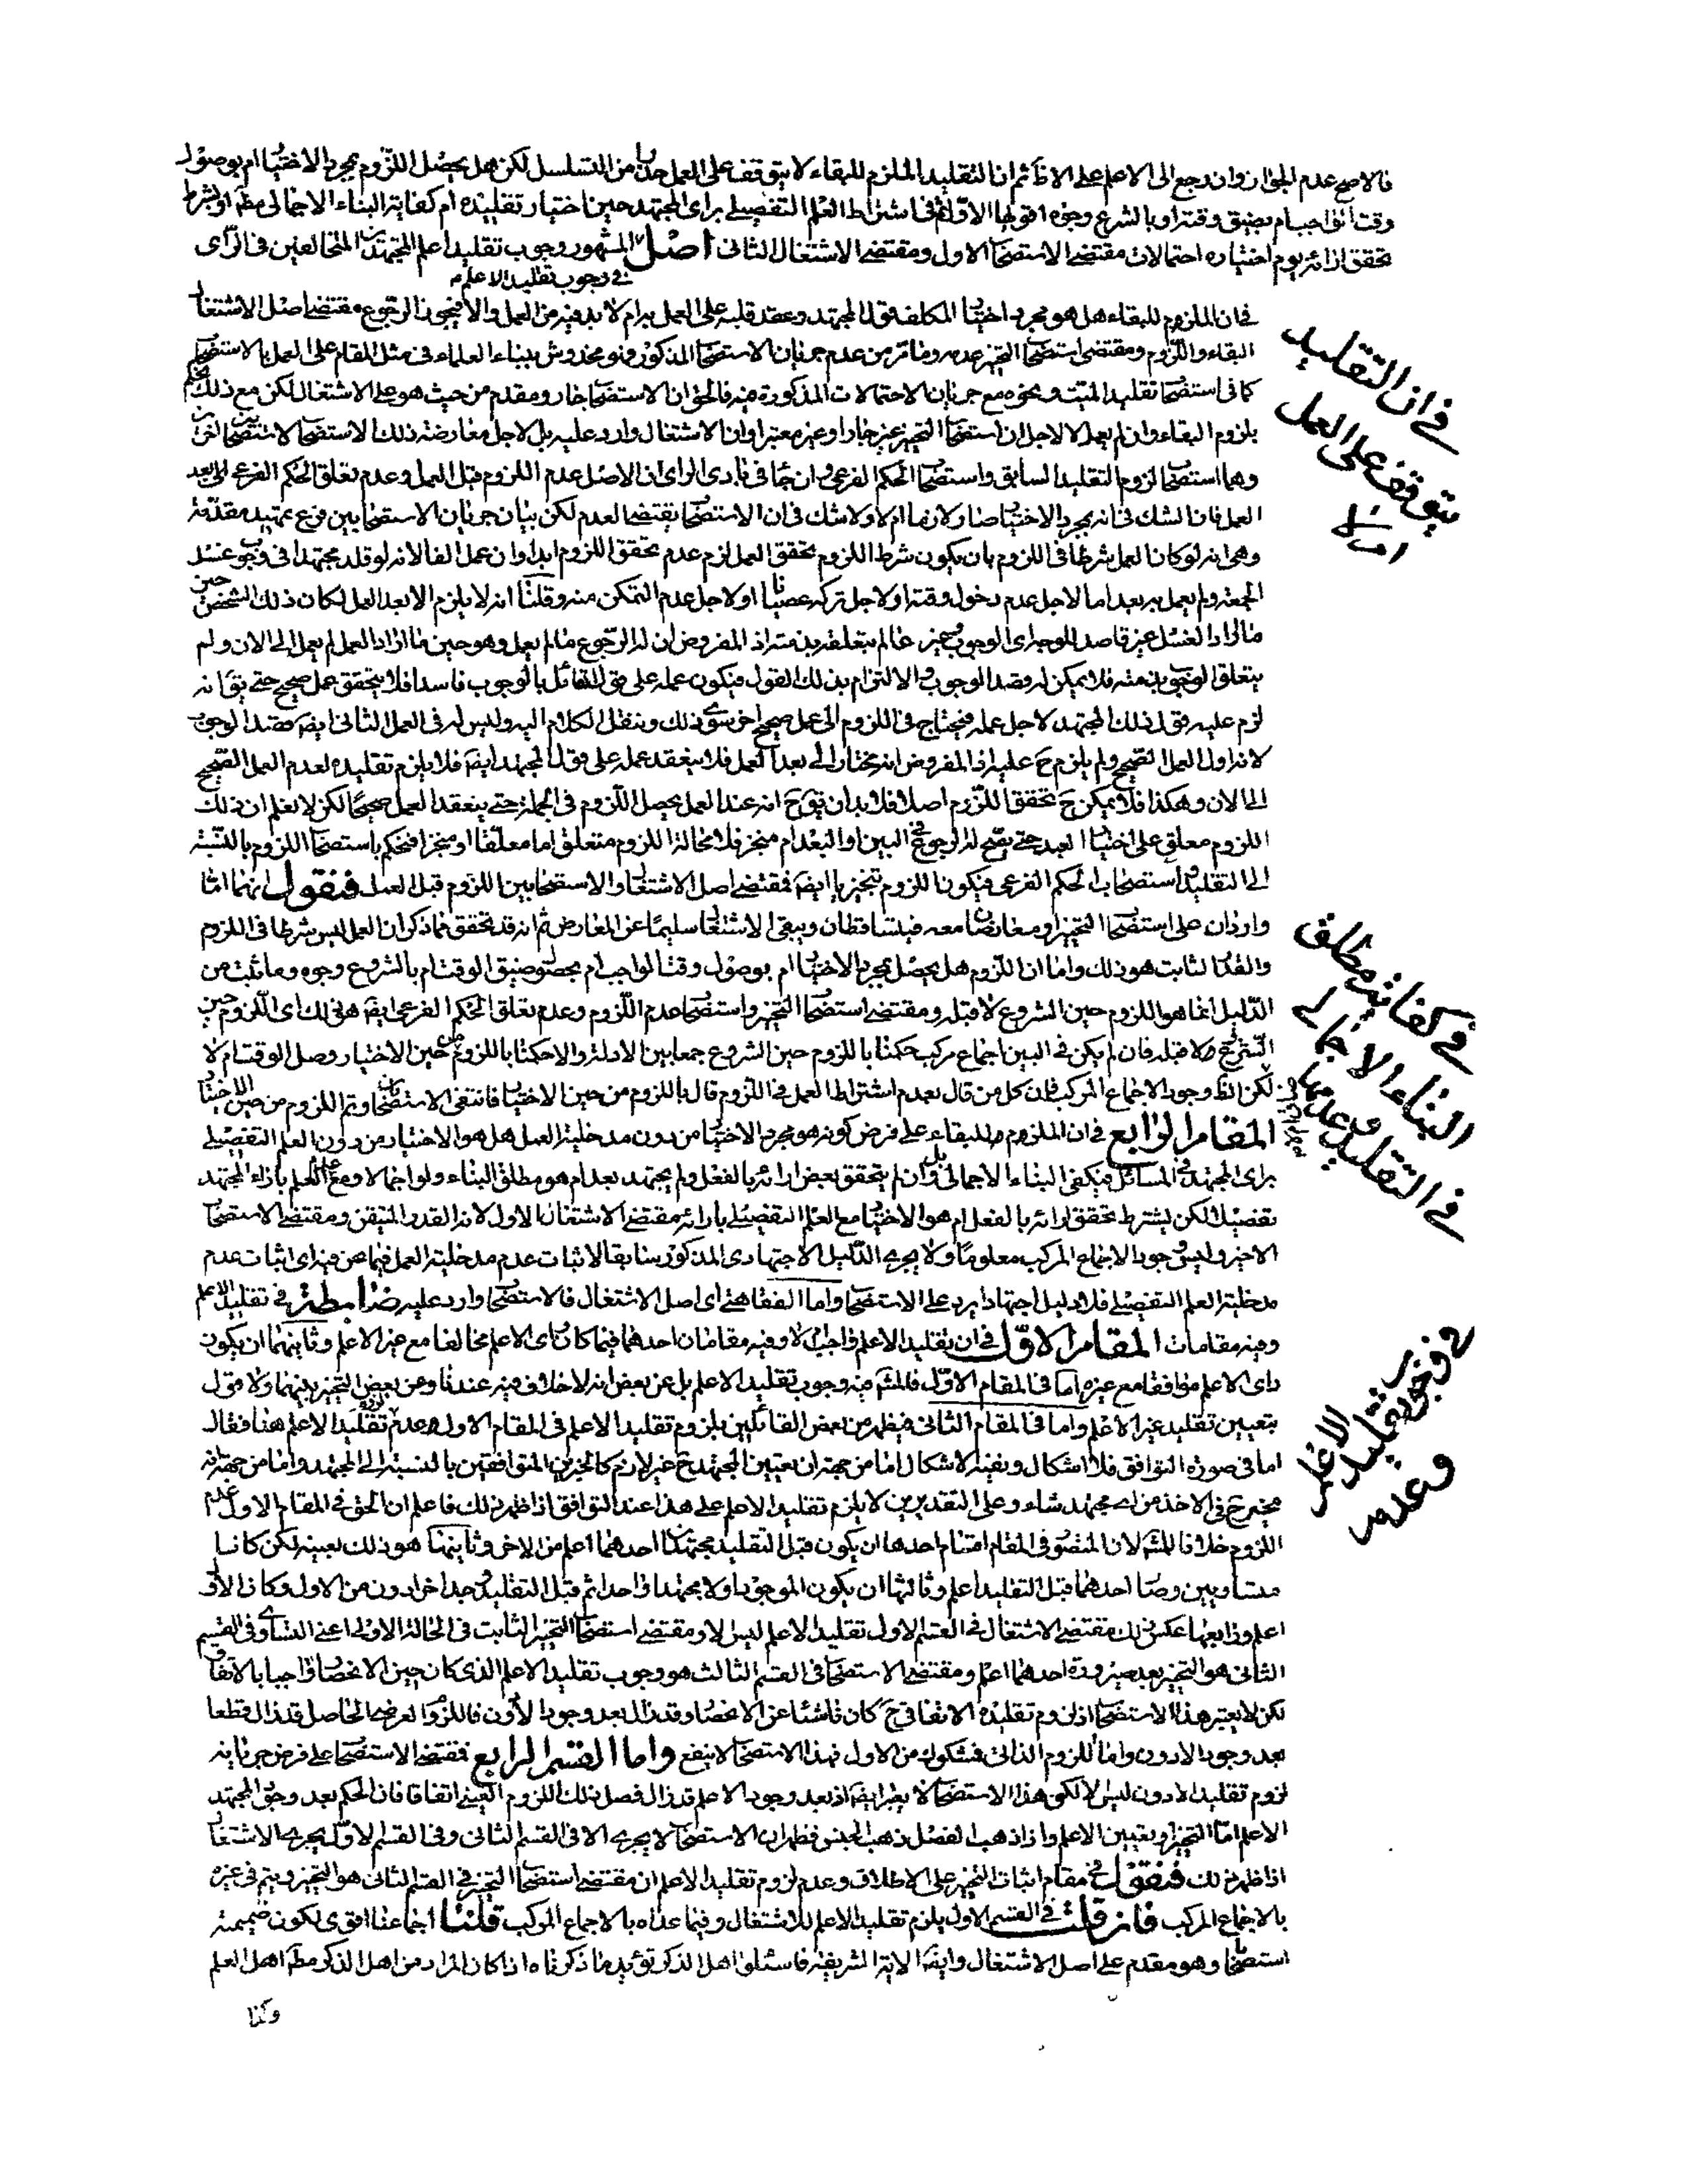 فالاصح عدم الجواز وان رجع الى الاعلم على الاظ ثم ان التقليد الملزم للبقاء لا يتوقف على العمل حذرا من التسلسل لكن هل يحصل اللزوم بمجرد الاختيار ام بوصول
وقت الواجب ام بضيق وقته او بالشروع وجوه اقولها الاول ثم فى اشتراط العلم التفصيلے براى المجتهد حين اختيار تقليده ام كفاية البناء الاجمالى مطم او بشرط
تحقق ارائه يوم اختياره احتمالات مقتضے الاستصحاب الاول ومقتضے الاشتغال الثانى اصل المشهور وجوب تقليد اعلم المجتهدين المتخالفين فى الراى
فى وجوب تقليد الاعلم
فى ان الملزوم للبقاء هل هو مجرد اختيار المكلف قول المجتهد وعقد قلبه على العمل به ام لا بد فيه من العمل والا فيجوز الرجوع مقتضے اصل الاشتغال
البقاء واللزوم ومقتضى استصحاب التخيير عدمه وما مر من عدم جريان الاستصحاب المذكور فهو مخدوش ببناء العلماء فى مثل المقام على العمل بالاستصحاب
كما فى استصحاب تقليد الميت ونحوه مع جريان الاحتمالات المذكورة فيه فالحق ان الاستصحاب جار ومقدم من حيث هو على الاشتغال لكن مع ذلك نحكم
بلزوم البقاء وان لم يعمل لا لاجل ان استصحاب التخيير غير جار او غير معتبر او ان الاشتغال وارد عليه بل لاجل معارضة ذلك الاستصحاب لاستصحابين اخرين
وهما استصحاب لزوم التقليد السابق واستصحاب الحكم الفرعى وان جاء فى بادى الراى ان الاصل عدم اللزوم قبل العمل وعدم تعلق الحكم الفرعى الى بعد
العمل فان الشك فى انه بمجرد الاختيار صار لازما ام لا ولا شك فى ان الاستصحاب يقتضے العدم لكن بيان جريان الاستصحابين فرع تمهيد مقدمة
وهى انه لو كان العمل شرطا فى اللزوم بان يكون شرط اللزوم تحقق العمل لزم عدم تحقق اللزوم ابدا وان عمل الفا لانه لو قلد مجتهدا فى وجوب غسل
الجمعة ولم يعمل به بعد اما لاجل عدم دخول وقته او لاجل تركه عصيانا او لاجل عدم التمكن منه وقلنا انه لا يلزم الا بعد العمل لكان ذلك الشخص حين
ما اراد الغسل غير قاصد للوجه اى الوجوب غير عالم بتعلقه بذمته اذ المفروض ان له الرجوع ما لم يعمل وهو حين ما اراد العمل لم يعمل الى الان ولم
يتعلق الوجوب بذمته فلا يمكن له قصد الوجوب والالتزام بذلك القول فيكون عمله على قول القائل بالوجوب فاسدا فلا يتحقق عمل صحيح حتے يق انه
لزم عليه قول ذلك المجتهد لاجل عمله فيحتاج فى اللزوم الى عمل صحيح اخر سوى ذلك وننقل الكلام اليه وليس له فى العمل الثانى ايضا قصد الوجوب
لانه اول العمل الصحيح ولم يلزم ح عليه اذ المفروض انه مختار الى بعد العمل فلا ينعقد عمله على قول المجتهد ايضا فلا يلزم تقليده لعدم العمل الصحيح
الى الان وهكذا فلا يمكن ح تحقق اللزوم اصلا فلا بد ان يق ح انه عند العمل يحصل اللزوم فى الجملة حتے ينعقد العمل صحيحا لكن لا نعلم ان ذلك
اللزوم معلق على اختيار العبد حتے يصح له الرجوع فى البين او البعد ام منجز فلا محالة اللزوم متعلق اما معلقا او منجزا فنحكم باستصحاب اللزوم بالنسبة
الى التقليد واستصحاب الحكم الفرعى فيكون اللزوم تنجيزيا ايضا فمقتضے اصل الاشتغال والاستصحابين اللزوم قبل العمل فنقول انهما اما
واردان على استصحاب التخيير او معارضان معه فيتساقطان ويبقى الاشتغال سليما عن المعارض ثم انه قد تحقق مما ذكر ان العمل ليس شرطا فى اللزوم
والقدر الثابت هو ذلك واما ان اللزوم هل يحصل بمجرد الاختيار ام بوصول وقت الواجب ام يحصل بضيق الوقت ام بالشروع وجوه وما ثبت من
الدليل انما هو اللزوم حين الشروع لا قبله ومقتضے استصحاب التخيير واستصحاب عدم اللزوم وعدم تعلق الحكم الفرعى ايضا هو ذلك اى اللزوم حين
الشروع لا قبله فان لم يكن فى البين اجماع مركب حكمنا باللزوم حين الشروع جمعا بين الادلة والا حكمنا باللزوم من حين الاختيار وصل الوقت ام لا
لكن الظ وجود الاجماع المركب فان كل من قال بعدم اشتراط العمل فى اللزوم قال باللزوم من حين الاختيار فانتفى الاستصحابان وتم اللزوم من حين الاختيار
المقام الرابع فى ان الملزوم للبقاء على فرض كونه هو مجرد الاختيار من دون مدخلية العمل هل هو الاختيار من دون العلم التفصيلے
براى المجتهد فى المسائل فيكفى البناء الاجمالى وان لم يتحقق بعض ارائه بالفعل ولم يجتهد بعد ام هو مطلق البناء ولو اجمالا ومع عدم العلم باراء المجتهد
تفصيلا لكن بشرط تحقق ارائه بالفعل ام هو الاختيار مع العلم التفصيلے بارائه مقتضے الاشتغال الاول لانه القدر المتيقن ومقتضے الاستصحاب
الاخير وليس وجود الاجماع المركب معلوما ولا يجرى الدليل الاجتهادى المذكور سابقا لاثبات عدم مدخلية العمل فيما نحن فيه اى اثبات عدم
مدخلية العلم التفصيلے فلا دليل اجتهاديا يرد على الاستصحاب واما الفقاهتے اى اصل الاشتغال فالاستصحاب وارد عليه ضابطة فى تقليد الاعلم
وفيه مقامات المقام الاول فى ان تقليد الاعلم واجب ام لا وفيه مقامان احدهما فيما كان راى الاعلم مخالفا مع غير الاعلم وثانيهما ان يكون
راى الاعلم موافقا مع غيره اما فى المقام الاول فالمشه فيه وجوب تقليد الاعلم بل عن بعض انه لا خلاف فيه عندنا وعن بعض التخيير بينهما ولا قول
بتعيين تقليد غير الاعلم واما فى المقام الثانى فيظهر من بعض القائلين بلزوم تقليد الاعلم فى المقام الاول عدم لزوم تقليد الاعلم هنا فقال
اما فى صورة التوافق فلا اشكال ونفيه الاشكال اما من جهة ان تعيين المجتهد ح غير لازم كالخبرين المتوافقين بالنسبة الى المجتهد واما من جهة انه
مخير ح فى الاخذ من اى مجتهد شاء وعلى التقديرين لا يلزم تقليد الاعلم على هذا عند التوافق اذا ظهر ذلك فاعلم ان الحق فى المقام الاول عدم
اللزوم خلافا للمشه لان المتصور فى المقام اقسام احدها ان يكون قبل التقليد مجتهدان احدهما اعلم من الاخر وثانيهما هو ذلك بعينه لكن كانا
متساويين وصار احدهما قبل التقليد اعلم وثالثها ان يكون الموجود اولا مجتهدا واحدا ثم قبل التقليد وجد اخر ادون من الاول وكان الاول
اعلم ورابعها عكس ذلك مقتضے الاشتغال فى القسم الاول تقليد الاعلم ليس الا ومقتضے استصحاب التخيير الثابت فى الحالة الاولى اعنى التساوى فى القسم
الثانى هو التخيير بعد صيرورة احدهما اعلم ومقتضے الاستصحاب فى القسم الثالث هو وجوب تقليد الاعلم الذى كان حين الانحصار واجبا بالاتفاق
لكن لا يعتبر هذا الاستصحاب اذ لزوم تقليده الاتفاقى ح كان ناشئا عن الانحصار وقد زال بعد وجود الادون فاللزوم العرضى الحاصل قد زال قطعا
بعد وجود الادون واما اللزوم الذاتى فمشكوك من الاول فهذا الاستصحاب لا ينفع واما القسم الرابع فمقتضے الاستصحاب على فرض جريانه
لزوم تقليد الادون ليس الا لكن هذا الاستصحاب لا يعتبر ايضا اذ بعد وجود الاعلم قد زال فصل ذلك اللزوم العينے اتفاقا فان الحكم بعد وجود المجتهد
الاعلم اما التخيير او تعيين الاعلم واذا ذهب الفصل ذهب الجنس فظهر ان الاستصحاب لا يجرى الا فى القسم الثانى وفى القسم الاول يجرى الاشتغال
اذا ظهر ذلك فنقول فى مقام اثبات التخيير على الاطلاق وعدم لزوم تقليد الاعلم ان مقتضے استصحاب التخيير فى القسم الثانى هو التخيير ويتم فى غيره
بالاجماع المركب فان قلت فى القسم الاول يلزم تقليد الاعلم للاشتغال وفيما عداه بالاجماع المركب قلنا اجماعنا اقوى لكون ضميمته
استصحابا وهو مقدم على اصل الاشتغال وايضا الاية الشريفة فاسئلوا اهل الذكر تؤيد ما ذكرناه اذا كان المراد من اهل الذكر مطم اهل العلم
وكذا
فى ان التقليد
يتوقف على العمل
ام لا
فى كفاية مطلق
البناء الاجمالے
فى التقليد وعدمها
فى وجوب تقليد
الاعلم
وعدمه